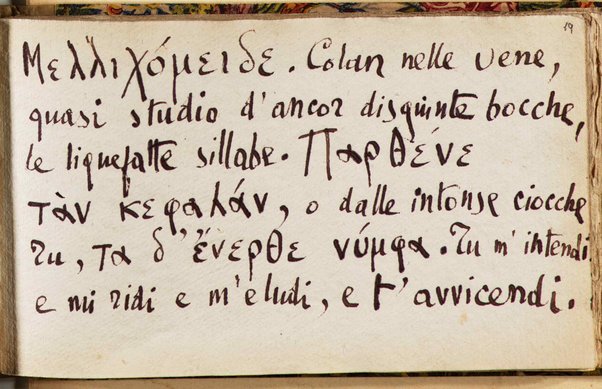 19
Μελλιχόμειδε. Colan nelle vene,
quasi studio d'ancor disgiunte bocche,
le liquefatte sillabe. Παρθένε
τὰν κεφαλάν, o dalle intonse ciocche
tu, τα δ' ἔνερθε νύμφα. Tu m'intendi
e mi ridi e m'eludi, e t'avvicendi.